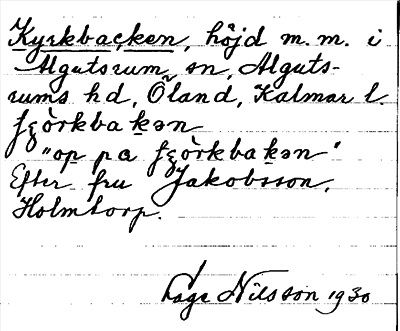 Kyrkbacken, höjd m. m. i
Algutsrum sn, Alguts-
rums hd, Öland, Kalmar l.
ʃɡòrkbakən
"op pa ʃɡòrkbakən"
Efter fru Jakobsson,
Holmtorp.
Nilsson 1930